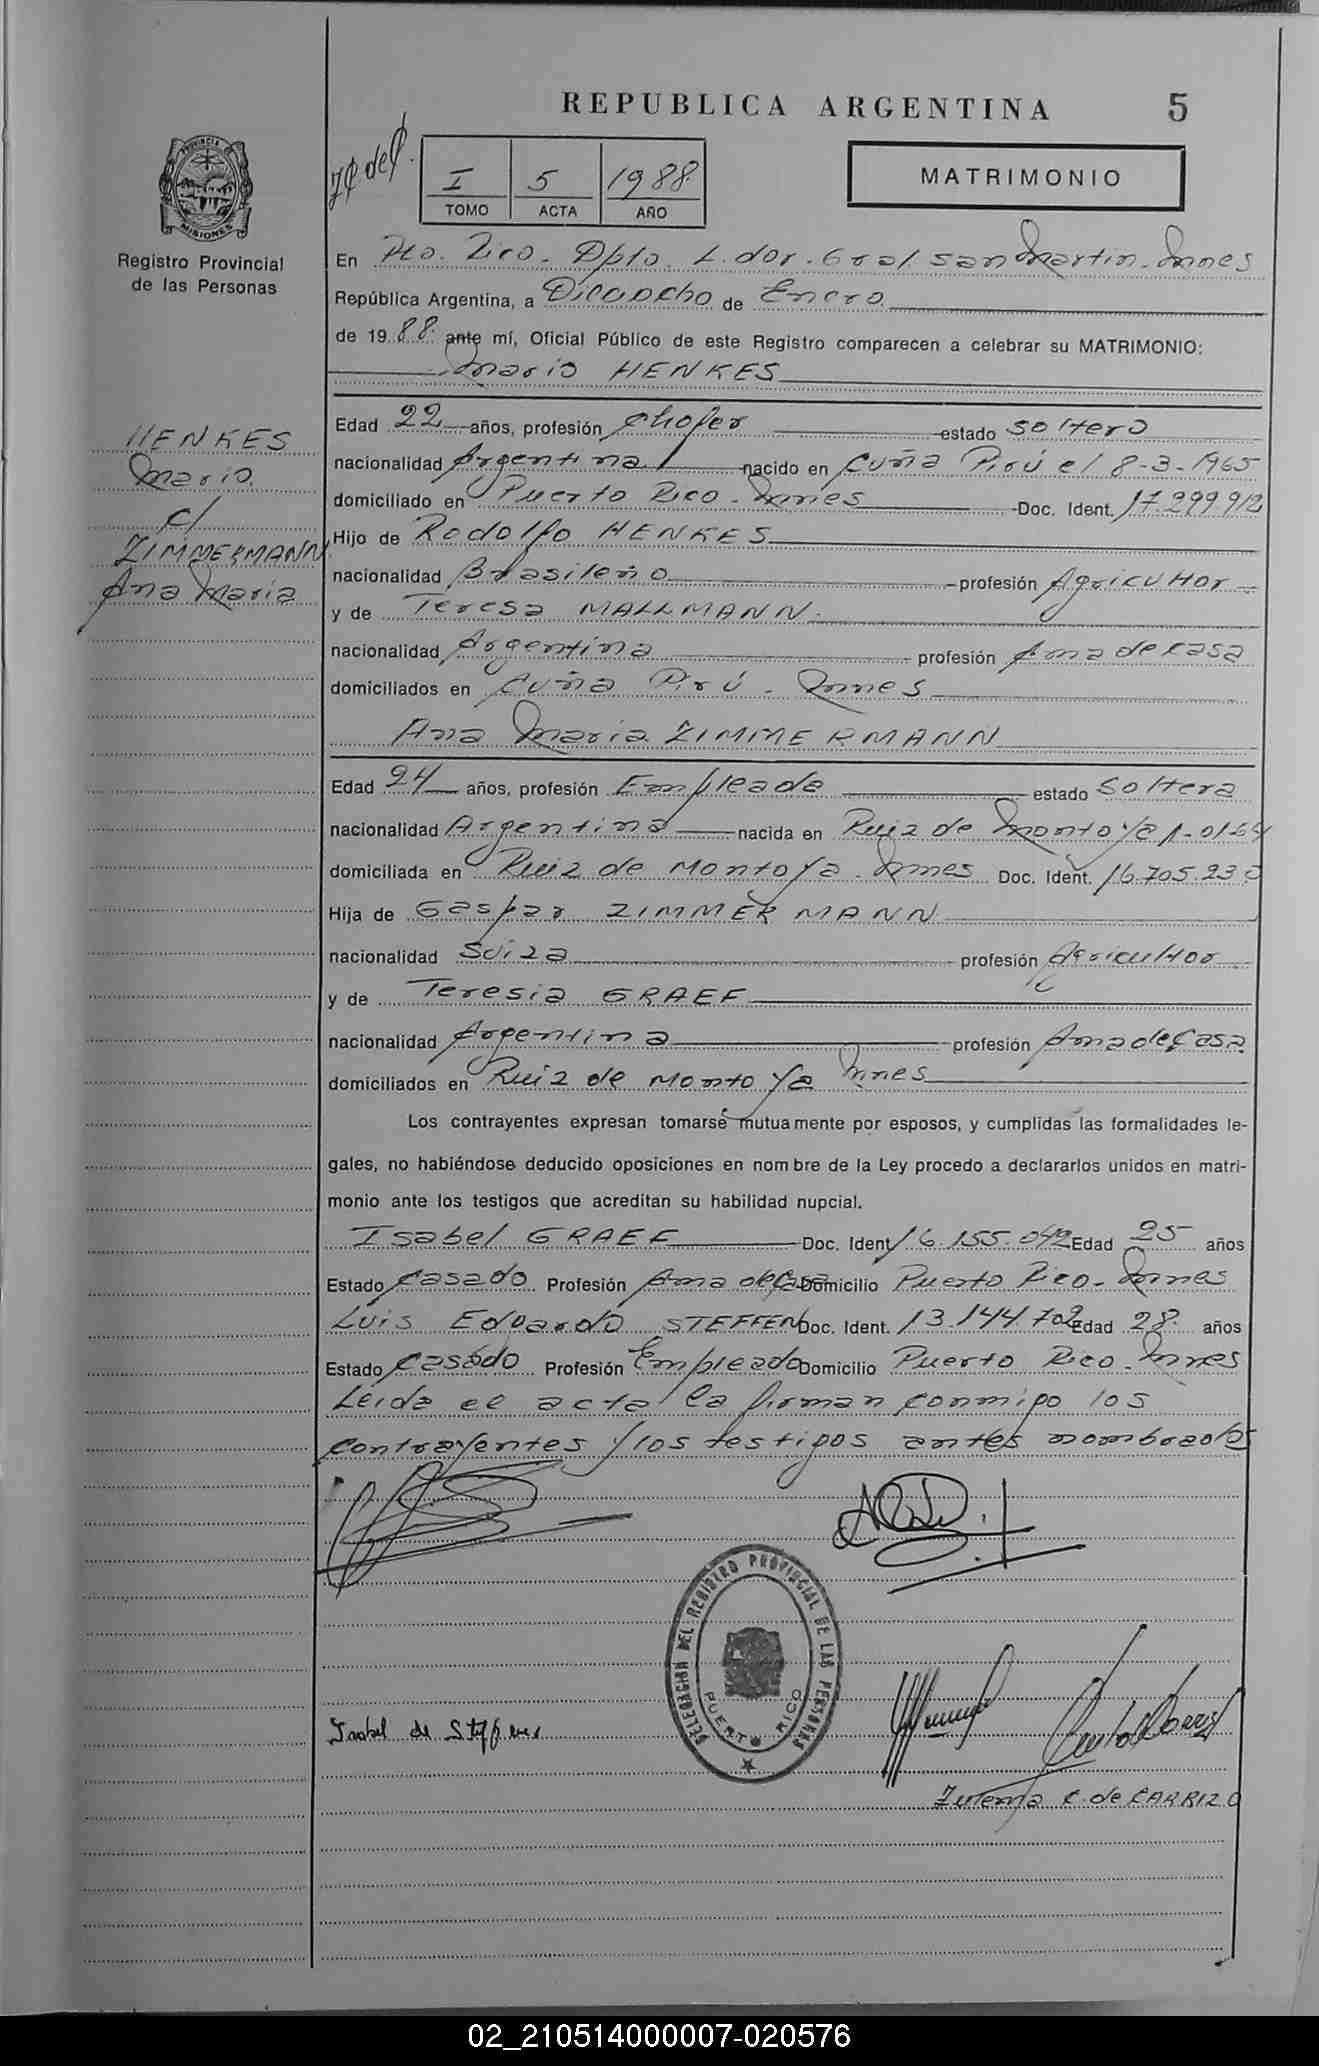 REPUBLICA ARGENTINA
5
PROVINCIA
MISIONES
Registro Provincial
de las Personas
I 5 1988
TOMO ACTA AÑO
MATRIMONIO
En Pto. Rico. Dpto. L. dor. Gral. San Martin. Mnes
República Argentina, a Dieciocho de Enero
de 1988 ante mí, Oficial Público de este Registro comparecen a celebrar su MATRIMONIO:
Mario HENKES
HENKES
Mario.
c/
ZIMMERMANN
Ana Maria
Edad 22 años, profesión Chofer estado soltero
nacionalidad Argentina nacido en Cuña Pirú el 8-3-1965
domiciliado en Puerto Rico. Mnes Doc. Ident. 17.299.912
Hijo de Rodolfo HENKES
nacionalidad Brasileño profesión Agricultor
y de Teresa MALLMANN
nacionalidad Argentina profesión Ama de casa
domiciliados en Cuña Pirú. Mnes
Ana Maria ZIMMERMANN
Edad 24 años, profesión Empleada estado soltera
nacionalidad Argentina nacida en Ruiz de Montoya 1-01-64
domiciliada en Ruiz de Montoya. Mnes Doc. Ident. 16.705.230
Hija de Gaspar ZIMMERMANN
nacionalidad Suiza profesión Agricultor
y de Teresia GRAEF
nacionalidad Argentina profesión Ama de Casa
domiciliados en Ruiz de Montoya Mnes
Los contrayentes expresan tomarse mutuamente por esposos, y cumplidas las formalidades le-
gales, no habiéndose deducido oposiciones en nombre de la Ley procedo a declararlos unidos en matri-
monio ante los testigos que acreditan su habilidad nupcial.
Isabel GRAEF Doc. Ident 16.155.042 Edad 25 años
Estado Casado Profesión Ama de Casa Domicilio Puerto Rico. Mnes
Luis Eduardo STEFFEN Doc. Ident. 13.144.702 Edad 28 años
Estado Casado Profesión Empleado Domicilio Puerto Rico. Mnes
Leida el acta la firman conmigo los
contrayentes y los testigos antes nombrados
DELEGACION DEL REGISTRO PROVINCIAL DE LAS PERSONAS
PUERTO RICO
Isabel de Steffen
Zulema C. de CARRIZO
02_210514000007-020576